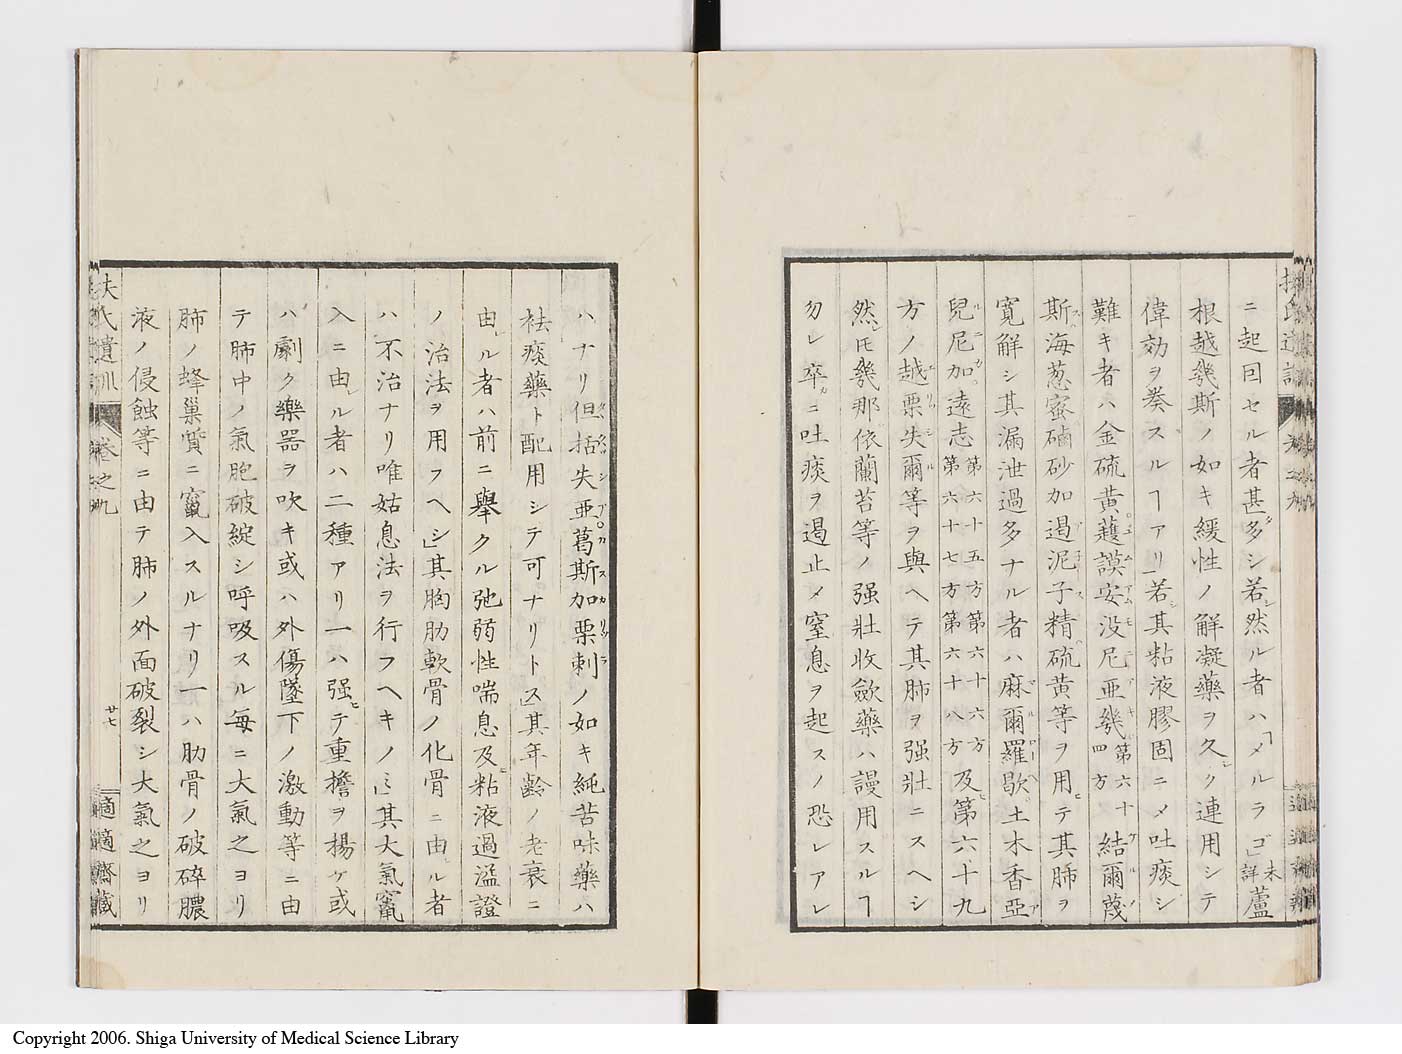 ニ起因セル者甚多シ若シ然ル者ハ「メルラゴ」未詳蘆
根越幾斯ノ如キ緩性ノ解凝藥ヲ久シク連用シテ
偉効ヲ奏スルヿアリ」若シ其粘液膠固ニメ吐痰シ
難キ者ハ金硫黄護謨安没尼亜幾第六十四方結爾蔑
斯海葱蜜磠砂加遏泥子精硫黄等ヲ用ヒテ其肺ヲ
寛解シ其漏泄過多ナル者ハ麻爾羅歇土木香亞
兒尼加遠志第六十五方第六十六方第六十七方第六十八方及ヒ第六十九
方ノ越栗失爾等ヲ與ヘテ其肺ヲ強壯ニスヘシ
然レ𪜈幾那依蘭苔等ノ强壯收歛藥ハ謾用スルヿ
勿レ卒カニ吐痰ヲ遏止メ窒息ヲ起スノ恐レアレ
扶氏遺訓
卷之九
ハナリ但括失亜葛斯加栗刺ノ如キ純苦味藥ハ
袪痰藥ト配用シテ可ナリトス」其年齡ノ老衰ニ
由ル者ハ前ニ擧クル弛弱性喘息及ヒ粘液過溢證
ノ治法ヲ用フヘシ」其胸肋軟骨ノ化骨ニ由ル者
ハ不治ナリ唯姑息法ヲ行フヘキノミ」其大氣竄
入ニ由ル者ハ二種アリ一ハ强ヒテ重擔ヲ揚ケ或
ハ劇ク樂器ヲ吹キ或ハ外傷墜下ノ激動等ニ由
テ肺中ノ氣胞破綻シ呼吸スル毎ニ大氣之ヨリ
肺ノ蜂巢質ニ竄入スルナリ一ハ肋骨ノ破碎膿
液ノ侵蝕等ニ由テ肺ノ外面破裂シ大氣之ヨリ
扶氏遺訓
卷之九
廿七
適適齋藏
Copyright 2006. Shiga University of Medical Science Library